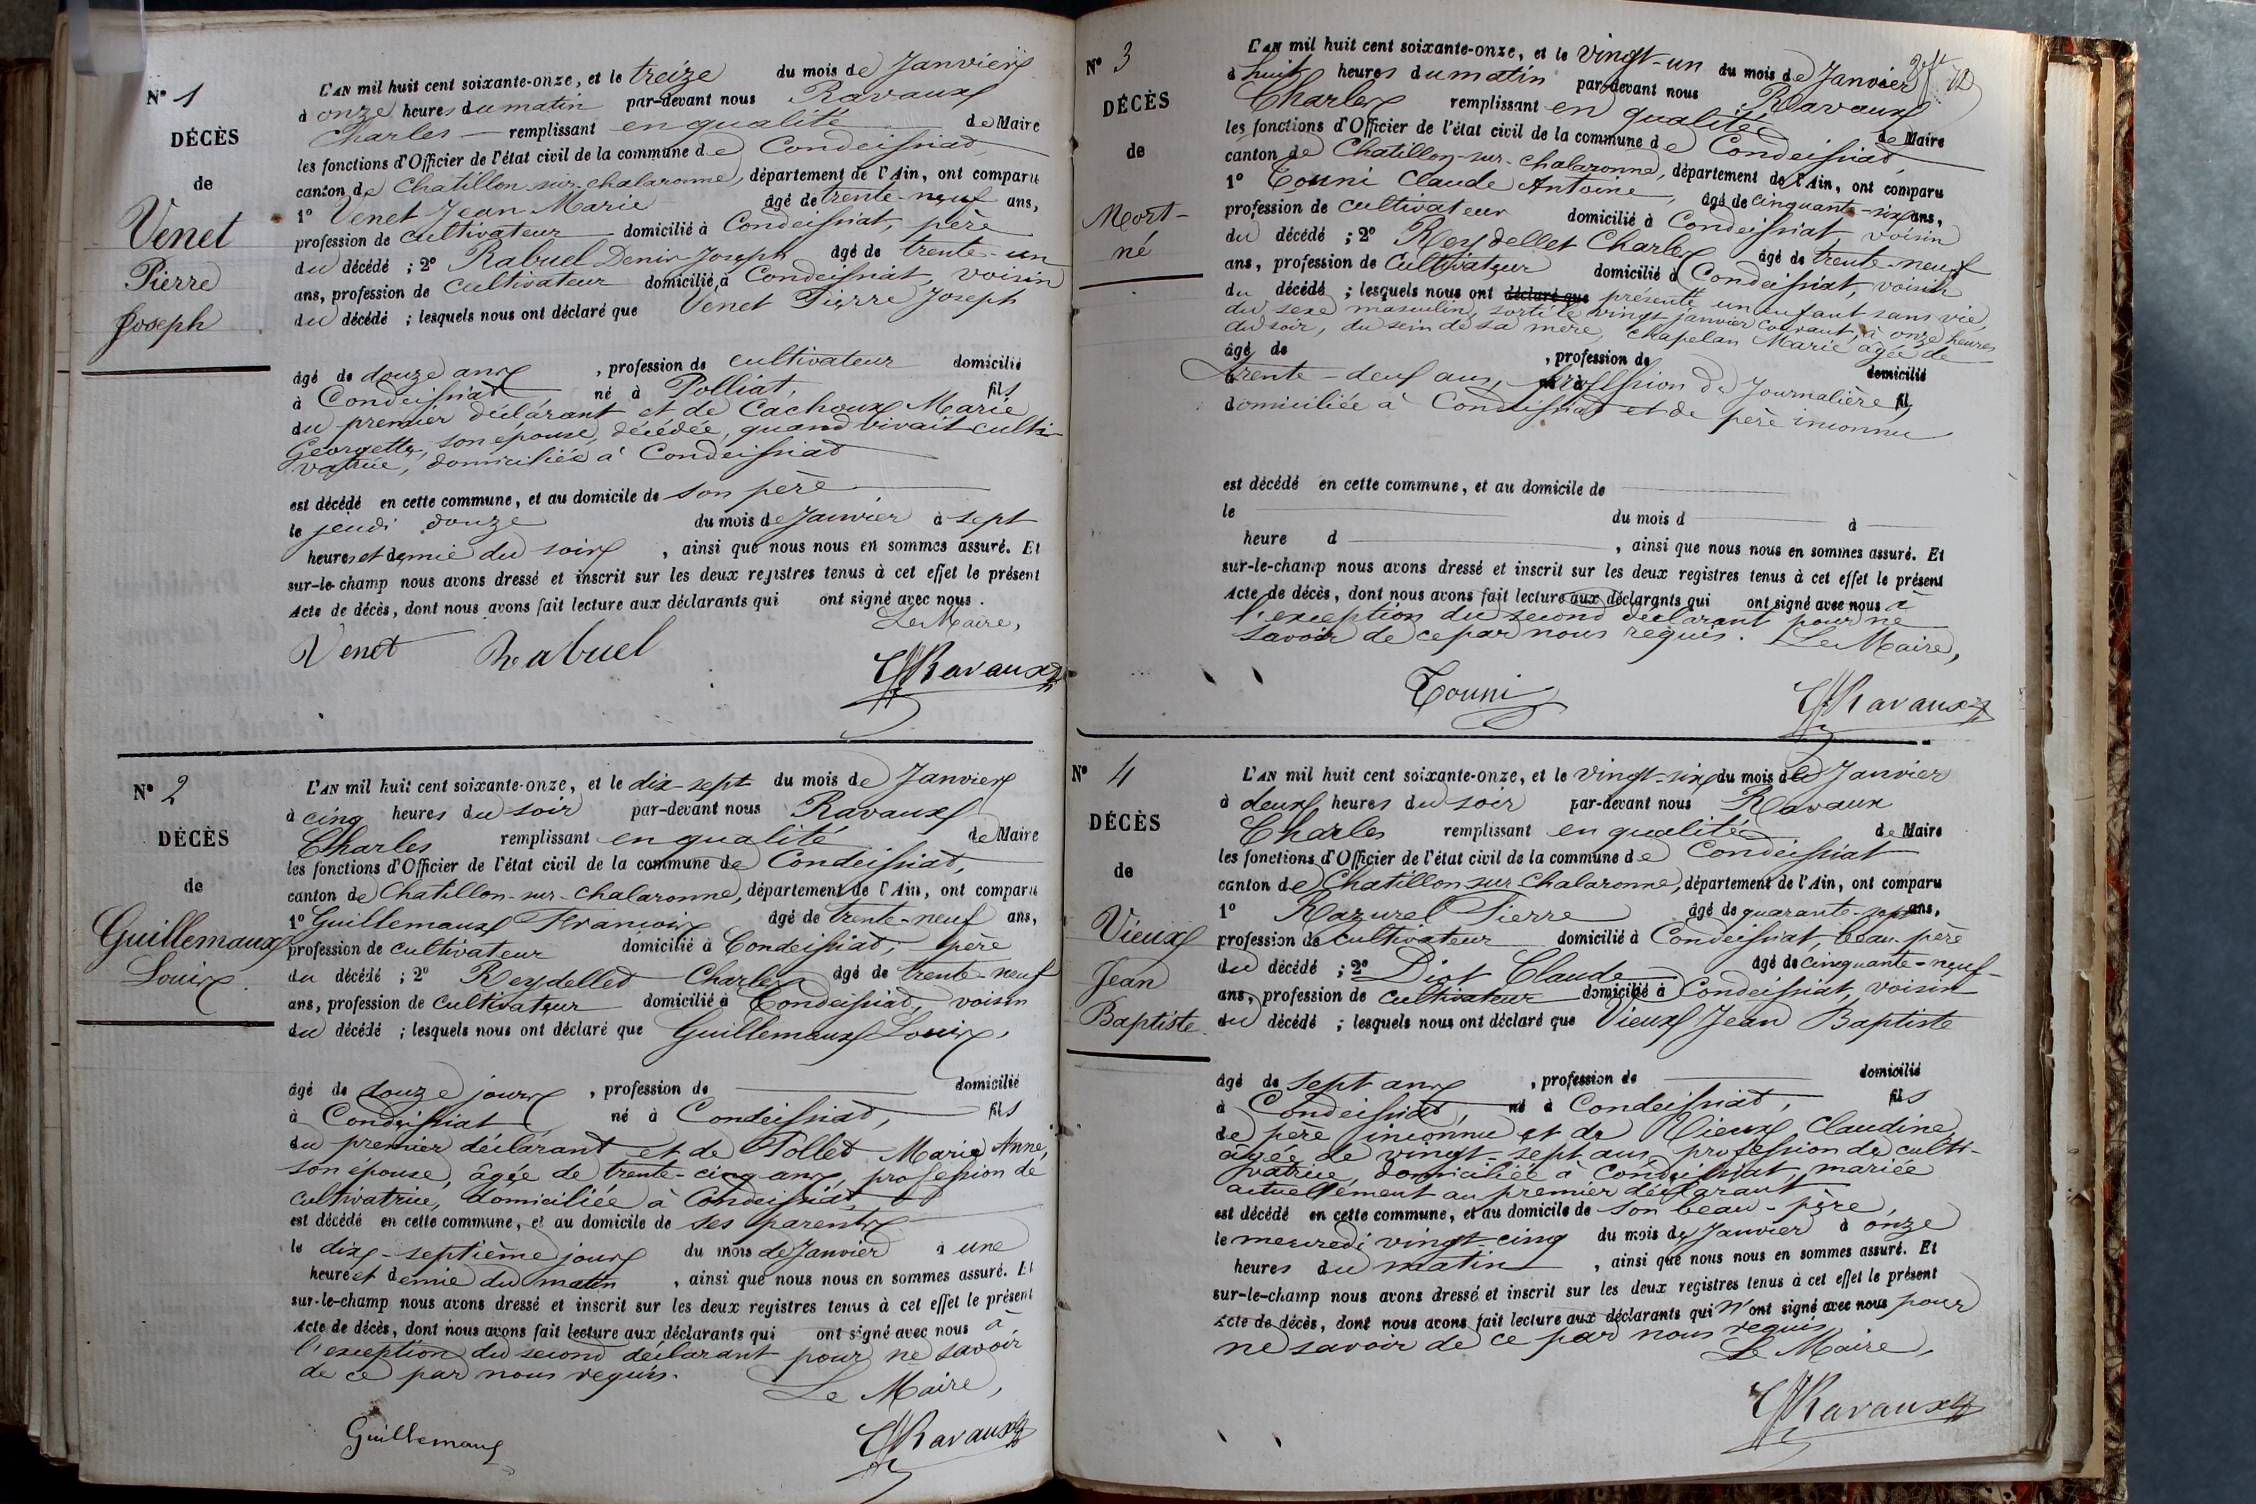 N° 1
DÉCÈS
de
Venet
Pierre
Joseph
L'AN mil huit cent soixante-onze, et le treize du mois de Janvier
à onze heures du matin par-devant nous Ravaux
Charles remplissant en qualité de Maire
les fonctions d'Officier de l'état civil de la commune de Condeissiat
canton de Chatillon-sur-chalaronne, département de l'Ain, ont comparu
1° Venet Jean Marie âgé de trente-neuf ans,
profession de cultivateur domicilié à Condeissiat, père
du décédé ; 2° Rabuel Denis Joseph âgé de trente-un
ans, profession de cultivateur domicilié à Condeissiat, voisin
du décédé ; lesquels nous ont déclaré que Venet Pierre Joseph
âgé de douze ans, profession de cultivateur domicilié
à Condeissiat, né à Polliat, fils
du premier déclarant et de Cachoux Marie
Georgette, son épouse, décédée, quand vivait culti-
vatrice, domiciliée à Condeissiat
est décédé en cette commune, et au domicile de son père
le jeudi douze du mois de Janvier à sept
heures et demie du soir, ainsi que nous nous en sommes assuré. Et
sur-le-champ nous avons dressé et inscrit sur les deux registres tenus à cet effet le présent
Acte de décès, dont nous avons fait lecture aux déclarants qui ont signé avec nous.
Le Maire,
Venet Rabuel Ch Ravaux
N° 2
DÉCÈS
de
Guillemaux
Louis
L'AN mil huit cent soixante-onze, et le dix-sept du mois de Janvier
à cinq heures du soir par-devant nous Ravaux
Charles remplissant en qualité de Maire
les fonctions d'Officier de l'état civil de la commune de Condeissiat,
canton de Chatillon-sur-chalaronne, département de l'Ain, ont comparu
1° Guillemaux François âgé de trente-neuf ans,
profession de cultivateur domicilié à Condeissiat, père
du décédé ; 2° Reydellet Charles âgé de trente-neuf
ans, profession de cultivateur domicilié à Condeissiat, voisin
du décédé ; lesquels nous ont déclaré que Guillemaux Louis,
âgé de douze jours, profession de domicilié
à Condeissiat né à Condeissiat, fils
du premier déclarant et de Pollet Marie Anne,
son épouse, âgée de trente-cinq ans, profession de
cultivatrice, domiciliée à Condeissiat
est décédé en cette commune, et au domicile de ses parents
le dix-septième jour du mois de Janvier à une
heure et demie du matin, ainsi que nous nous en sommes assuré. Et
sur-le-champ nous avons dressé et inscrit sur les deux registres tenus à cet effet le présent
Acte de décès, dont nous avons fait lecture aux déclarants qui ont signé avec nous à
l'exception du second déclarant pour ne savoir
de ce par nous requis.
Le Maire,
Guillemaux Ch Ravaux
N° 3
DÉCÈS
de
Mort-
né
L'AN mil huit cent soixante-onze, et le vingt-un du mois de Janvier
à huit heures du matin par-devant nous Ravaux
Charles remplissant en qualité de Maire
les fonctions d'Officier de l'état civil de la commune de Condeissiat
canton de Chatillon-sur-chalaronne, département de l'Ain, ont comparu
1° Touni Claude Antoine, âgé de cinquante-six ans,
profession de cultivateur domicilié à Condeissiat, voisin
du décédé ; 2° Reydellet Charles âgé de trente-neuf
ans, profession de cultivateur domicilié à Condeissiat, voisin
du décédé ; lesquels nous ont déclaré que présenté un enfant sans vie,
du sexe masculin, sorti le vingt janvier courant, à onze heures
du soir, du sein de sa mère, Chapelan Marie âgée de
âgé de , profession de domicilié
trente-deux ans, profession de Journalière, fil
domiciliée à Condeissiat et de père inconnu
est décédé en cette commune, et au domicile de
le du mois d à
heure d , ainsi que nous nous en sommes assuré. Et
sur-le-champ nous avons dressé et inscrit sur les deux registres tenus à cet effet le présent
Acte de décès, dont nous avons fait lecture aux déclarants qui ont signé avec nous à
l'exception du second déclarant pour ne
savoir de ce par nous requis. Le Maire,
Touni Ch Ravaux
N° 4
DÉCÈS
de
Vieux
Jean
Baptiste
L'AN mil huit cent soixante-onze, et le vingt-six du mois de Janvier
à deux heures du soir par-devant nous Ravaux
Charles remplissant en qualité de Maire
les fonctions d'Officier de l'état civil de la commune de Condeissiat
canton de Chatillon sur Chalaronne, département de l'Ain, ont comparu
1° Razurel Pierre âgé de quarante-sept ans,
profession de cultivateur domicilié à Condeissiat, beau-père
du décédé ; 2° Diot Claude âgé de cinquante-neuf
ans, profession de cultivateur domicilié à Condeissiat, voisin
du décédé ; lesquels nous ont déclaré que Vieux Jean Baptiste
âgé de sept ans, profession de domicilié
à Condeissiat, né à Condeissiat, fils
de père inconnu et de Vieux Claudine,
âgée de vingt-sept ans, profession de culti-
vatrice, domiciliée à Condeissiat, mariée
actuellement au premier déclarant
est décédé en cette commune, et au domicile de son beau-père,
le mercredi vingt-cinq du mois de Janvier à onze
heures du matin, ainsi que nous nous en sommes assuré. Et
sur-le-champ nous avons dressé et inscrit sur les deux registres tenus à cet effet le présent
Acte de décès, dont nous avons fait lecture aux déclarants qui n'ont signé avec nous pour
ne savoir de ce par nous requis
Le Maire,
Ch Ravaux